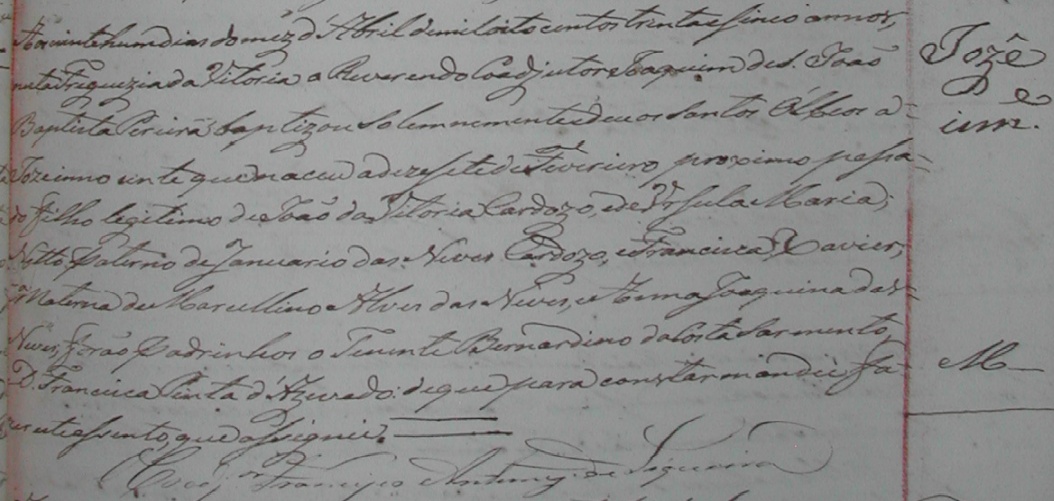 Aos vinte hum dias do mez d'Abril de mil oito centos trinta e sinco annos,
nesta Freguezia da Vitoria o Reverendo Coadjutor Joaquim de S. João
Baptista Pereira, baptizou solemnemente, e deu os Santos Óleos a=
Joze innocente que naceu a dezesete de Fevereiro proximo passa=
do filho legitimo de João da Vitoria Cardozo, e de Ursula Maria;
Netto Paterno de Januario das Neves Cardozo, e Francisca Xavier,
Materna de Marcellino Alves das Neves, e Anna Joaquina das=
Neves, forão Padrinhos o Tenente Bernardino da Costa Sarmento,
D. Francisca Pinta d'Azevedo: de que para constar mandei fa=
zer este assento, que assignei.
Francisco Antunes de Siqueira
Jozê
M